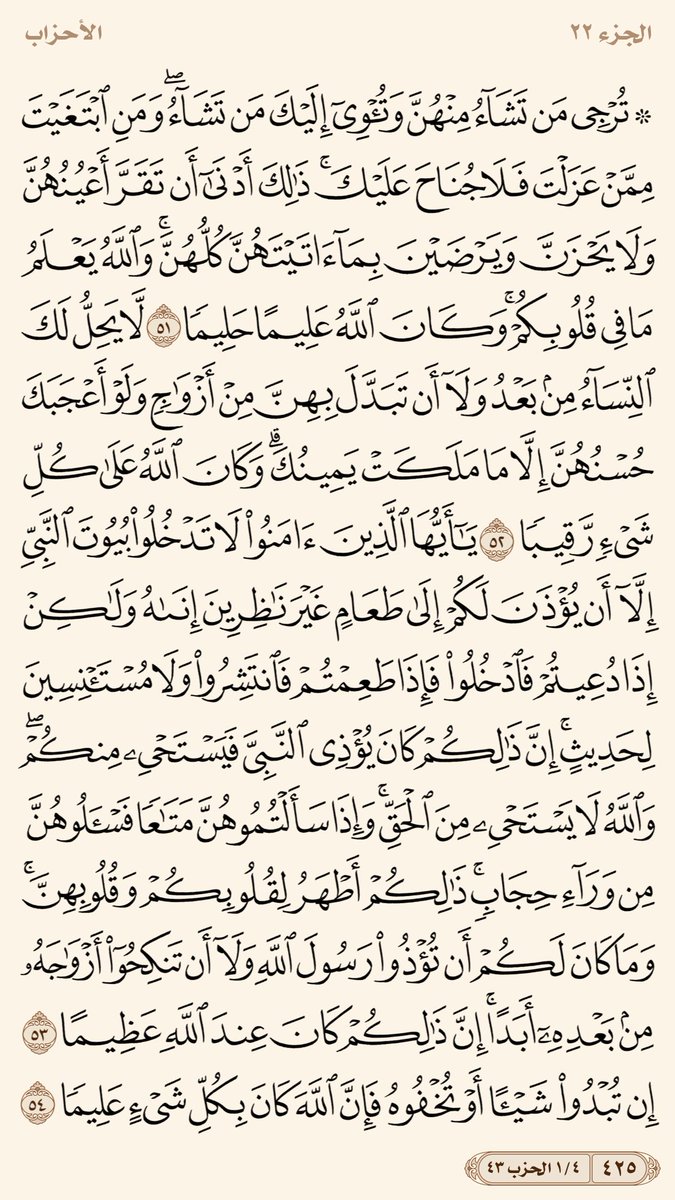 الجزء ٢٢ الأحزاب
۞ تُرْجِى مَن تَشَآءُ مِنْهُنَّ وَتُـْٔوِىٓ إِلَيْكَ مَن تَشَآءُۖ وَمَنِ ٱبْتَغَيْتَ
مِمَّنْ عَزَلْتَ فَلَا جُنَاحَ عَلَيْكَۚ ذَٰلِكَ أَدْنَىٰٓ أَن تَقَرَّ أَعْيُنُهُنَّ
وَلَا يَحْزَنَّ وَيَرْضَيْنَ بِمَآ ءَاتَيْتَهُنَّ كُلُّهُنَّۚ وَٱللَّهُ يَعْلَمُ
مَا فِى قُلُوبِكُمْۚ وَكَانَ ٱللَّهُ عَلِيمًا حَلِيمًا ٥١ لَّا يَحِلُّ لَكَ
ٱلنِّسَآءُ مِنۢ بَعْدُ وَلَآ أَن تَبَدَّلَ بِهِنَّ مِنْ أَزْوَٰجٍ وَلَوْ أَعْجَبَكَ
حُسْنُهُنَّ إِلَّا مَا مَلَكَتْ يَمِينُكَۗ وَكَانَ ٱللَّهُ عَلَىٰ كُلِّ
شَىْءٍ رَّقِيبًا ٥٢ يَـٰٓأَيُّهَا ٱلَّذِينَ ءَامَنُوا۟ لَا تَدْخُلُوا۟ بُيُوتَ ٱلنَّبِىِّ
إِلَّآ أَن يُؤْذَنَ لَكُمْ إِلَىٰ طَعَامٍ غَيْرَ نَـٰظِرِينَ إِنَىٰهُ وَلَـٰكِنْ
إِذَا دُعِيتُمْ فَٱدْخُلُوا۟ فَإِذَا طَعِمْتُمْ فَٱنتَشِرُوا۟ وَلَا مُسْتَـْٔنِسِينَ
لِحَدِيثٍۚ إِنَّ ذَٰلِكُمْ كَانَ يُؤْذِى ٱلنَّبِىَّ فَيَسْتَحْىِۦ مِنكُمْۖ
وَٱللَّهُ لَا يَسْتَحْىِۦ مِنَ ٱلْحَقِّۚ وَإِذَا سَأَلْتُمُوهُنَّ مَتَـٰعًا فَسْـَٔلُوهُنَّ
مِن وَرَآءِ حِجَابٍۚ ذَٰلِكُمْ أَطْهَرُ لِقُلُوبِكُمْ وَقُلُوبِهِنَّۚ
وَمَا كَانَ لَكُمْ أَن تُؤْذُوا۟ رَسُولَ ٱللَّهِ وَلَآ أَن تَنكِحُوٓا۟ أَزْوَٰجَهُۥ
مِنۢ بَعْدِهِۦٓ أَبَدًاۚ إِنَّ ذَٰلِكُمْ كَانَ عِندَ ٱللَّهِ عَظِيمًا ٥٣
إِن تُبْدُوا۟ شَيْـًٔا أَوْ تُخْفُوهُ فَإِنَّ ٱللَّهَ كَانَ بِكُلِّ شَىْءٍ عَلِيمًا ٥٤
٤٢٥ ١/٤ الحزب ٤٣